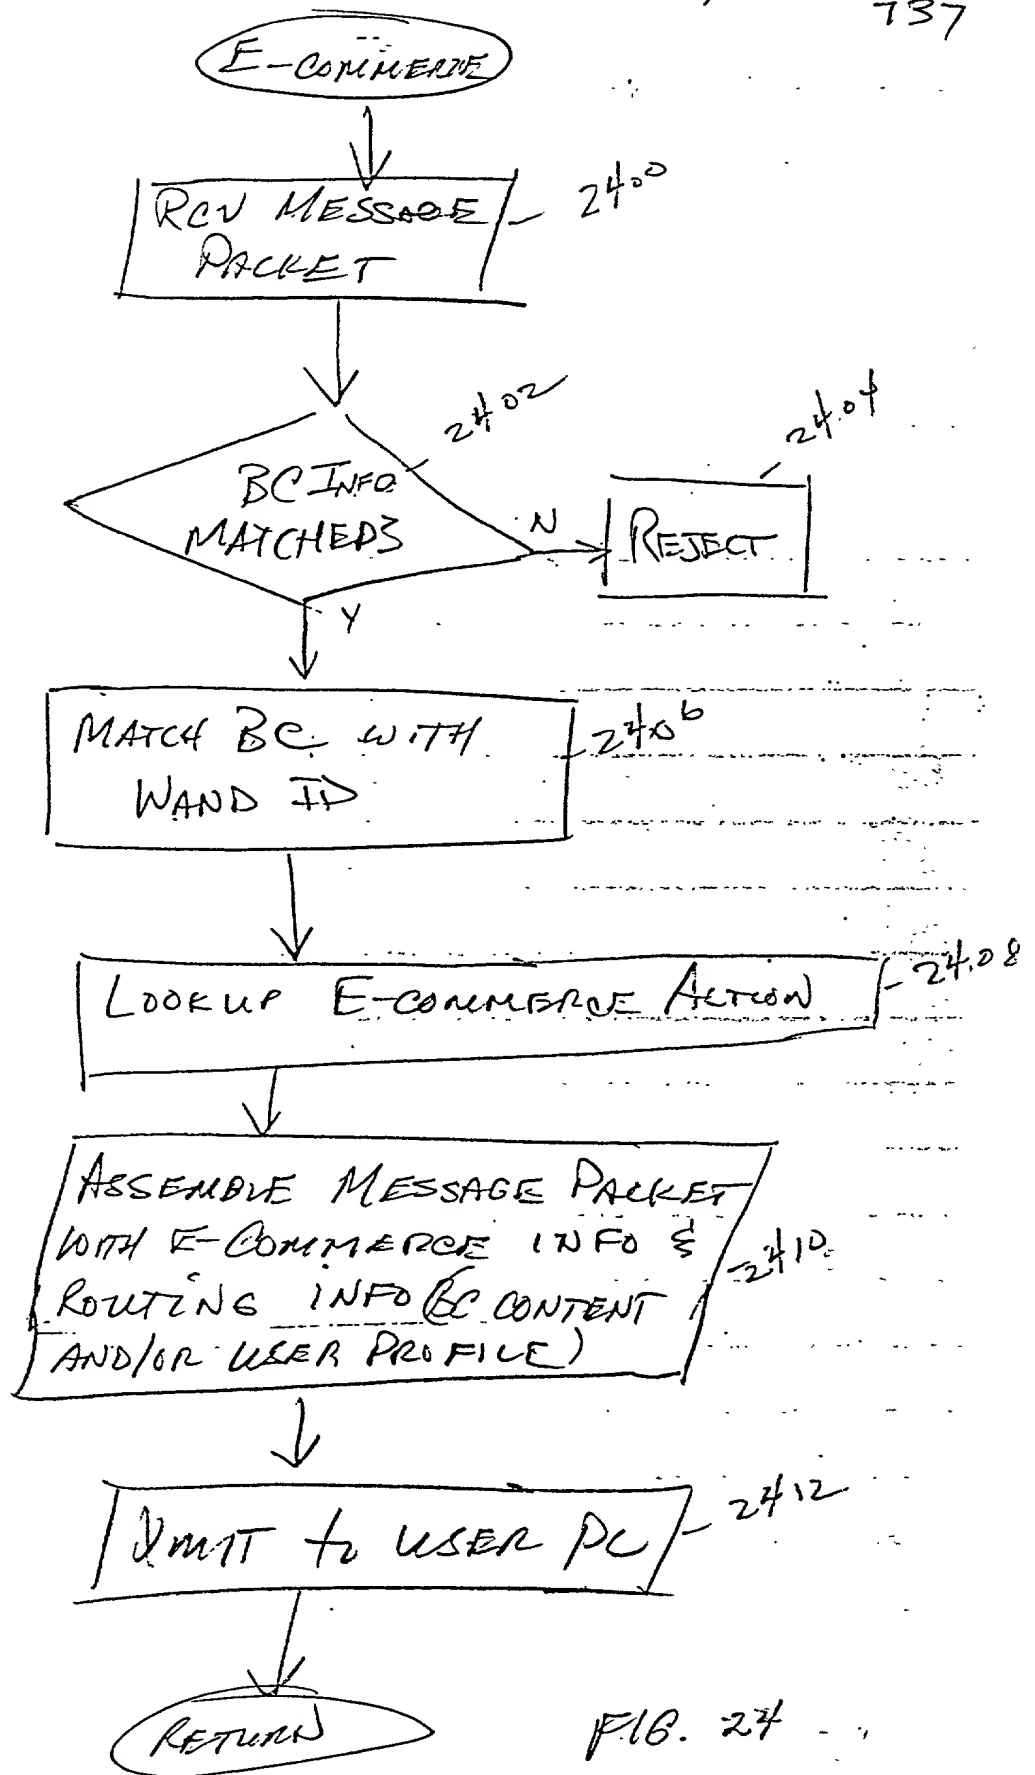 737
E-COMMERCE
RCV MESSAGE
PACKET
2400
2402
2404
BC INFO
MATCHED?
N
REJECT
Y
MATCH BC WITH
WAND ID
2406
LOOKUP E-COMMERCE ACTION
2408
ASSEMBLE MESSAGE PACKET
WITH E-COMMERCE INFO &
ROUTING INFO (BC CONTENT
AND/OR USER PROFILE)
2410
XMIT to USER PC
2412
RETURN
FIG. 24